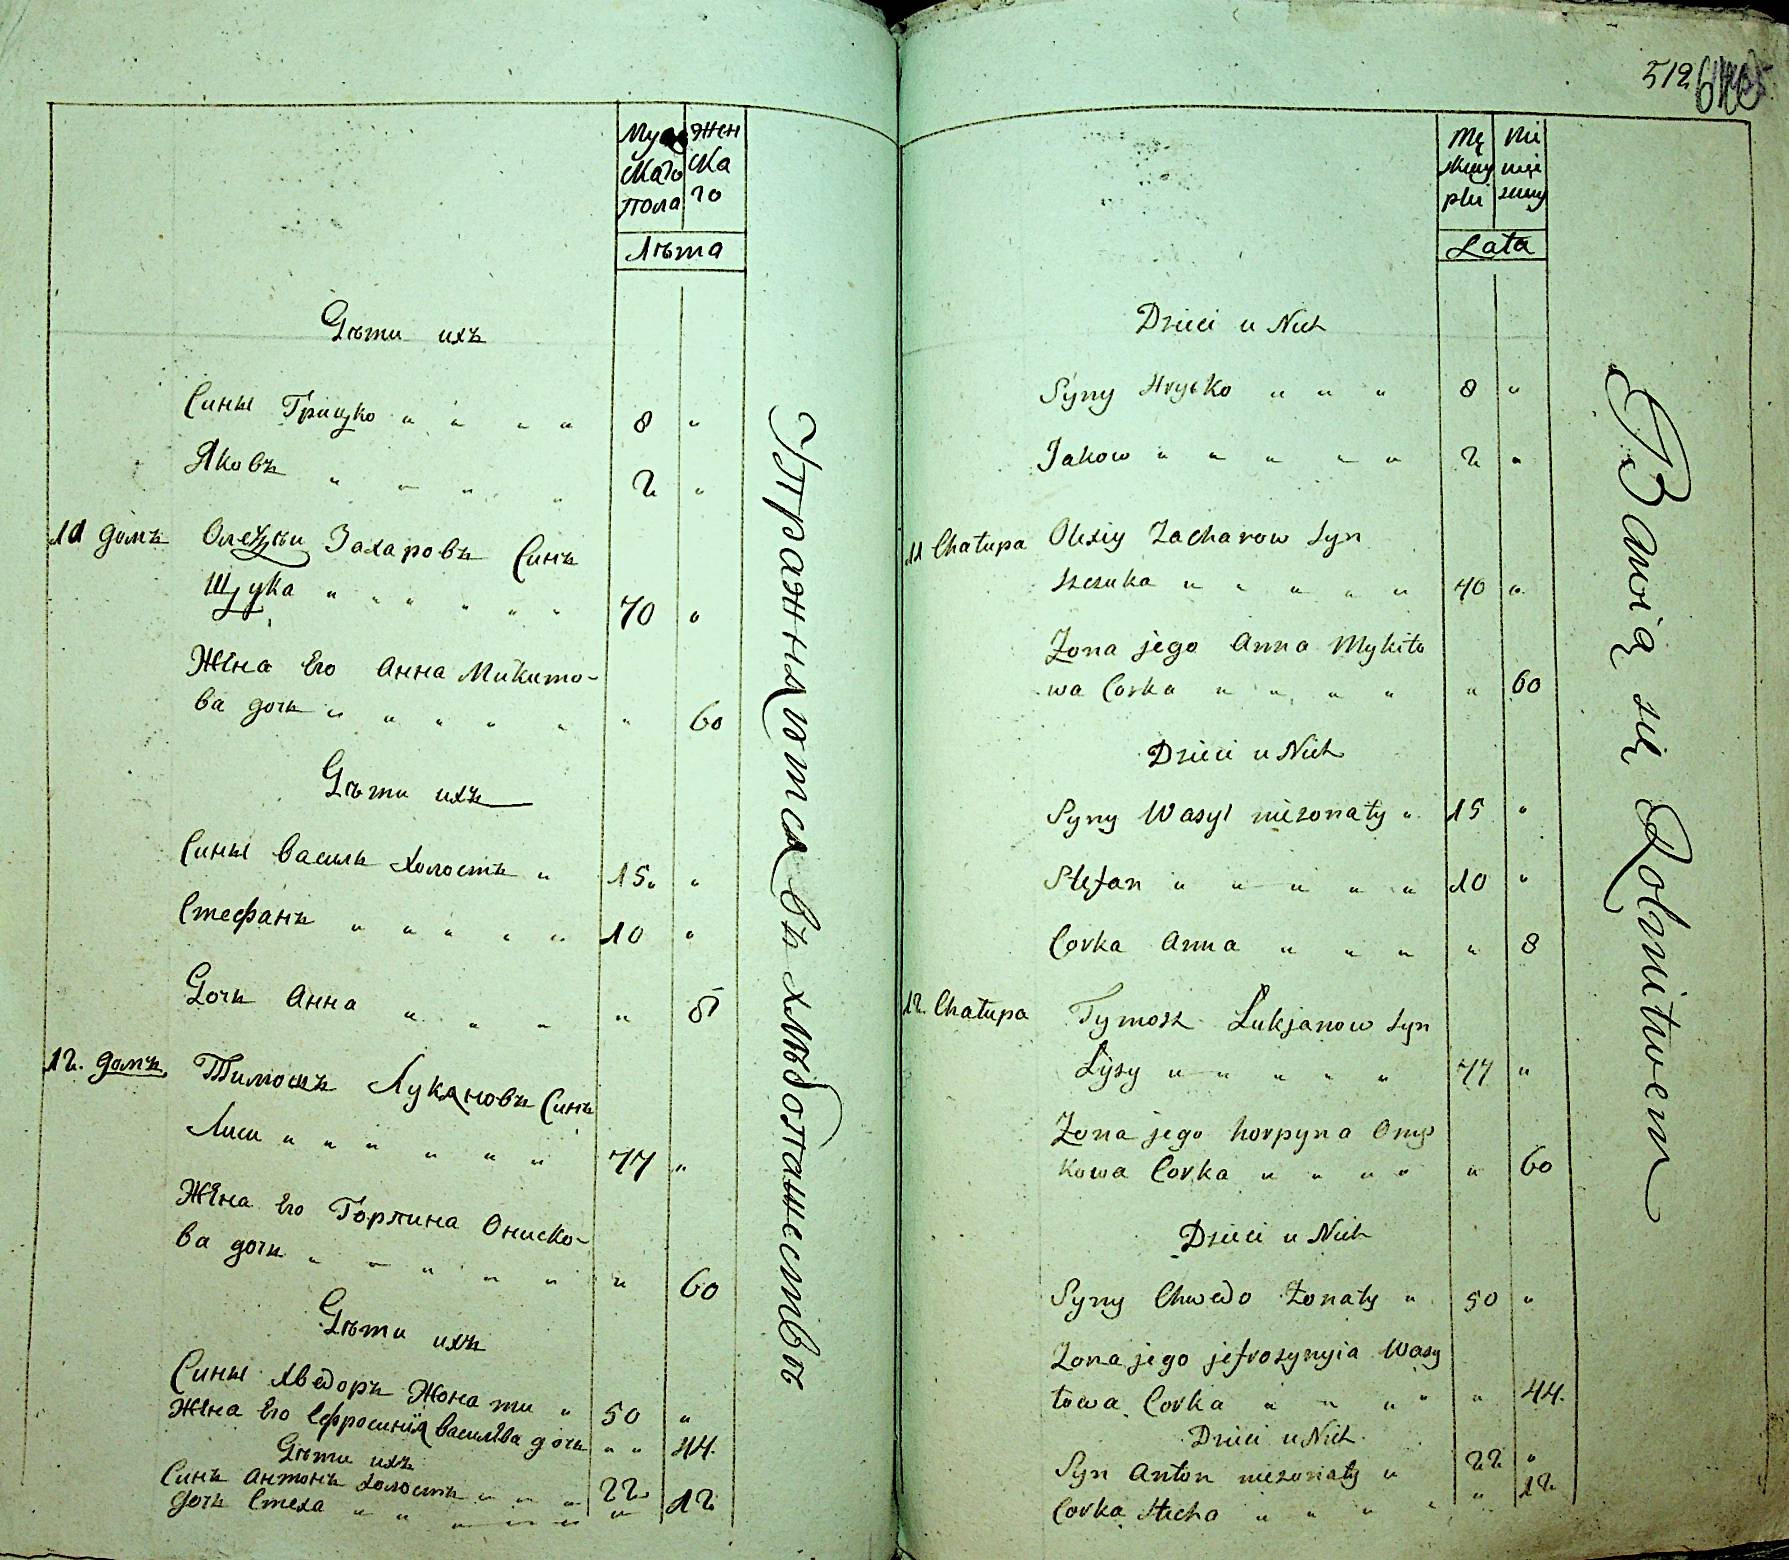 Муж
скаго
пола
Жен
ска
го
Лѣта
Дѣти ихъ
Сины Грицко " " " " 8 "
Яковъ " " " " 2 "
11 домъ Олеѯѣи Захаровъ Синъ
Щука " " " " " " 70 "
Жена Его Анна Микито-
ва дочь " " " " " " 60
Дѣти ихъ
Сины Василь холостъ " 15 " "
Стефанъ " " " " " 10 "
Дочь Анна " " " " 8
12. домъ Тимошъ Лукяновъ Синъ
Лиси " " " " " " 77 "
Жена Его Горпина Ониско-
ва дочь " " " " " " 60
Дѣти ихъ
Сины Хведоръ Жонати " 50 "
Жена Его Ефросинія Василева дочь " " 44.
Дѣти ихъ
Синъ Антонъ холостъ " " " 22
дочь Стеха " " " " " " 12
Упражняются въ хлѣбопашествѣ
512
Mę
skiey
płci
Nie
wieś
ciey
Lata
Dzieci u Nich
Syny Hryćko " " " 8 "
Jakow " " " " " 2 "
11 Chałupa Olexiy Zacharow Syn
Szczuka " " " " " 70 "
Zona jego Anna Mykito
wa Corka " " " " " 60
Dzieci u Nich
Syny Wasyl nieżonaty " 15 "
Stefan " " " " " 10 "
Corka Anna " " " " 8
12. Chałupa Tymosz Lukjanow Syn
Łysy " " " " " 77 "
Zona jego horpyna Onys
kowa Corka " " " " " 60
Dzieci u Nich
Syny Chwedo Żonaty " 50 "
Zona jego jefrozynyia Wasy
lowa Corka " " " " " 44.
Dzieci u Nich
Syn Anton niezonaty " 22 "
Corka Stecha " " " " " 12
Bawią się Rolnitwem